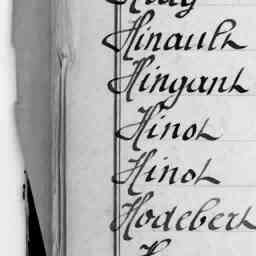 Hinault
Hingant
Hinot
Hinot
Hodebert